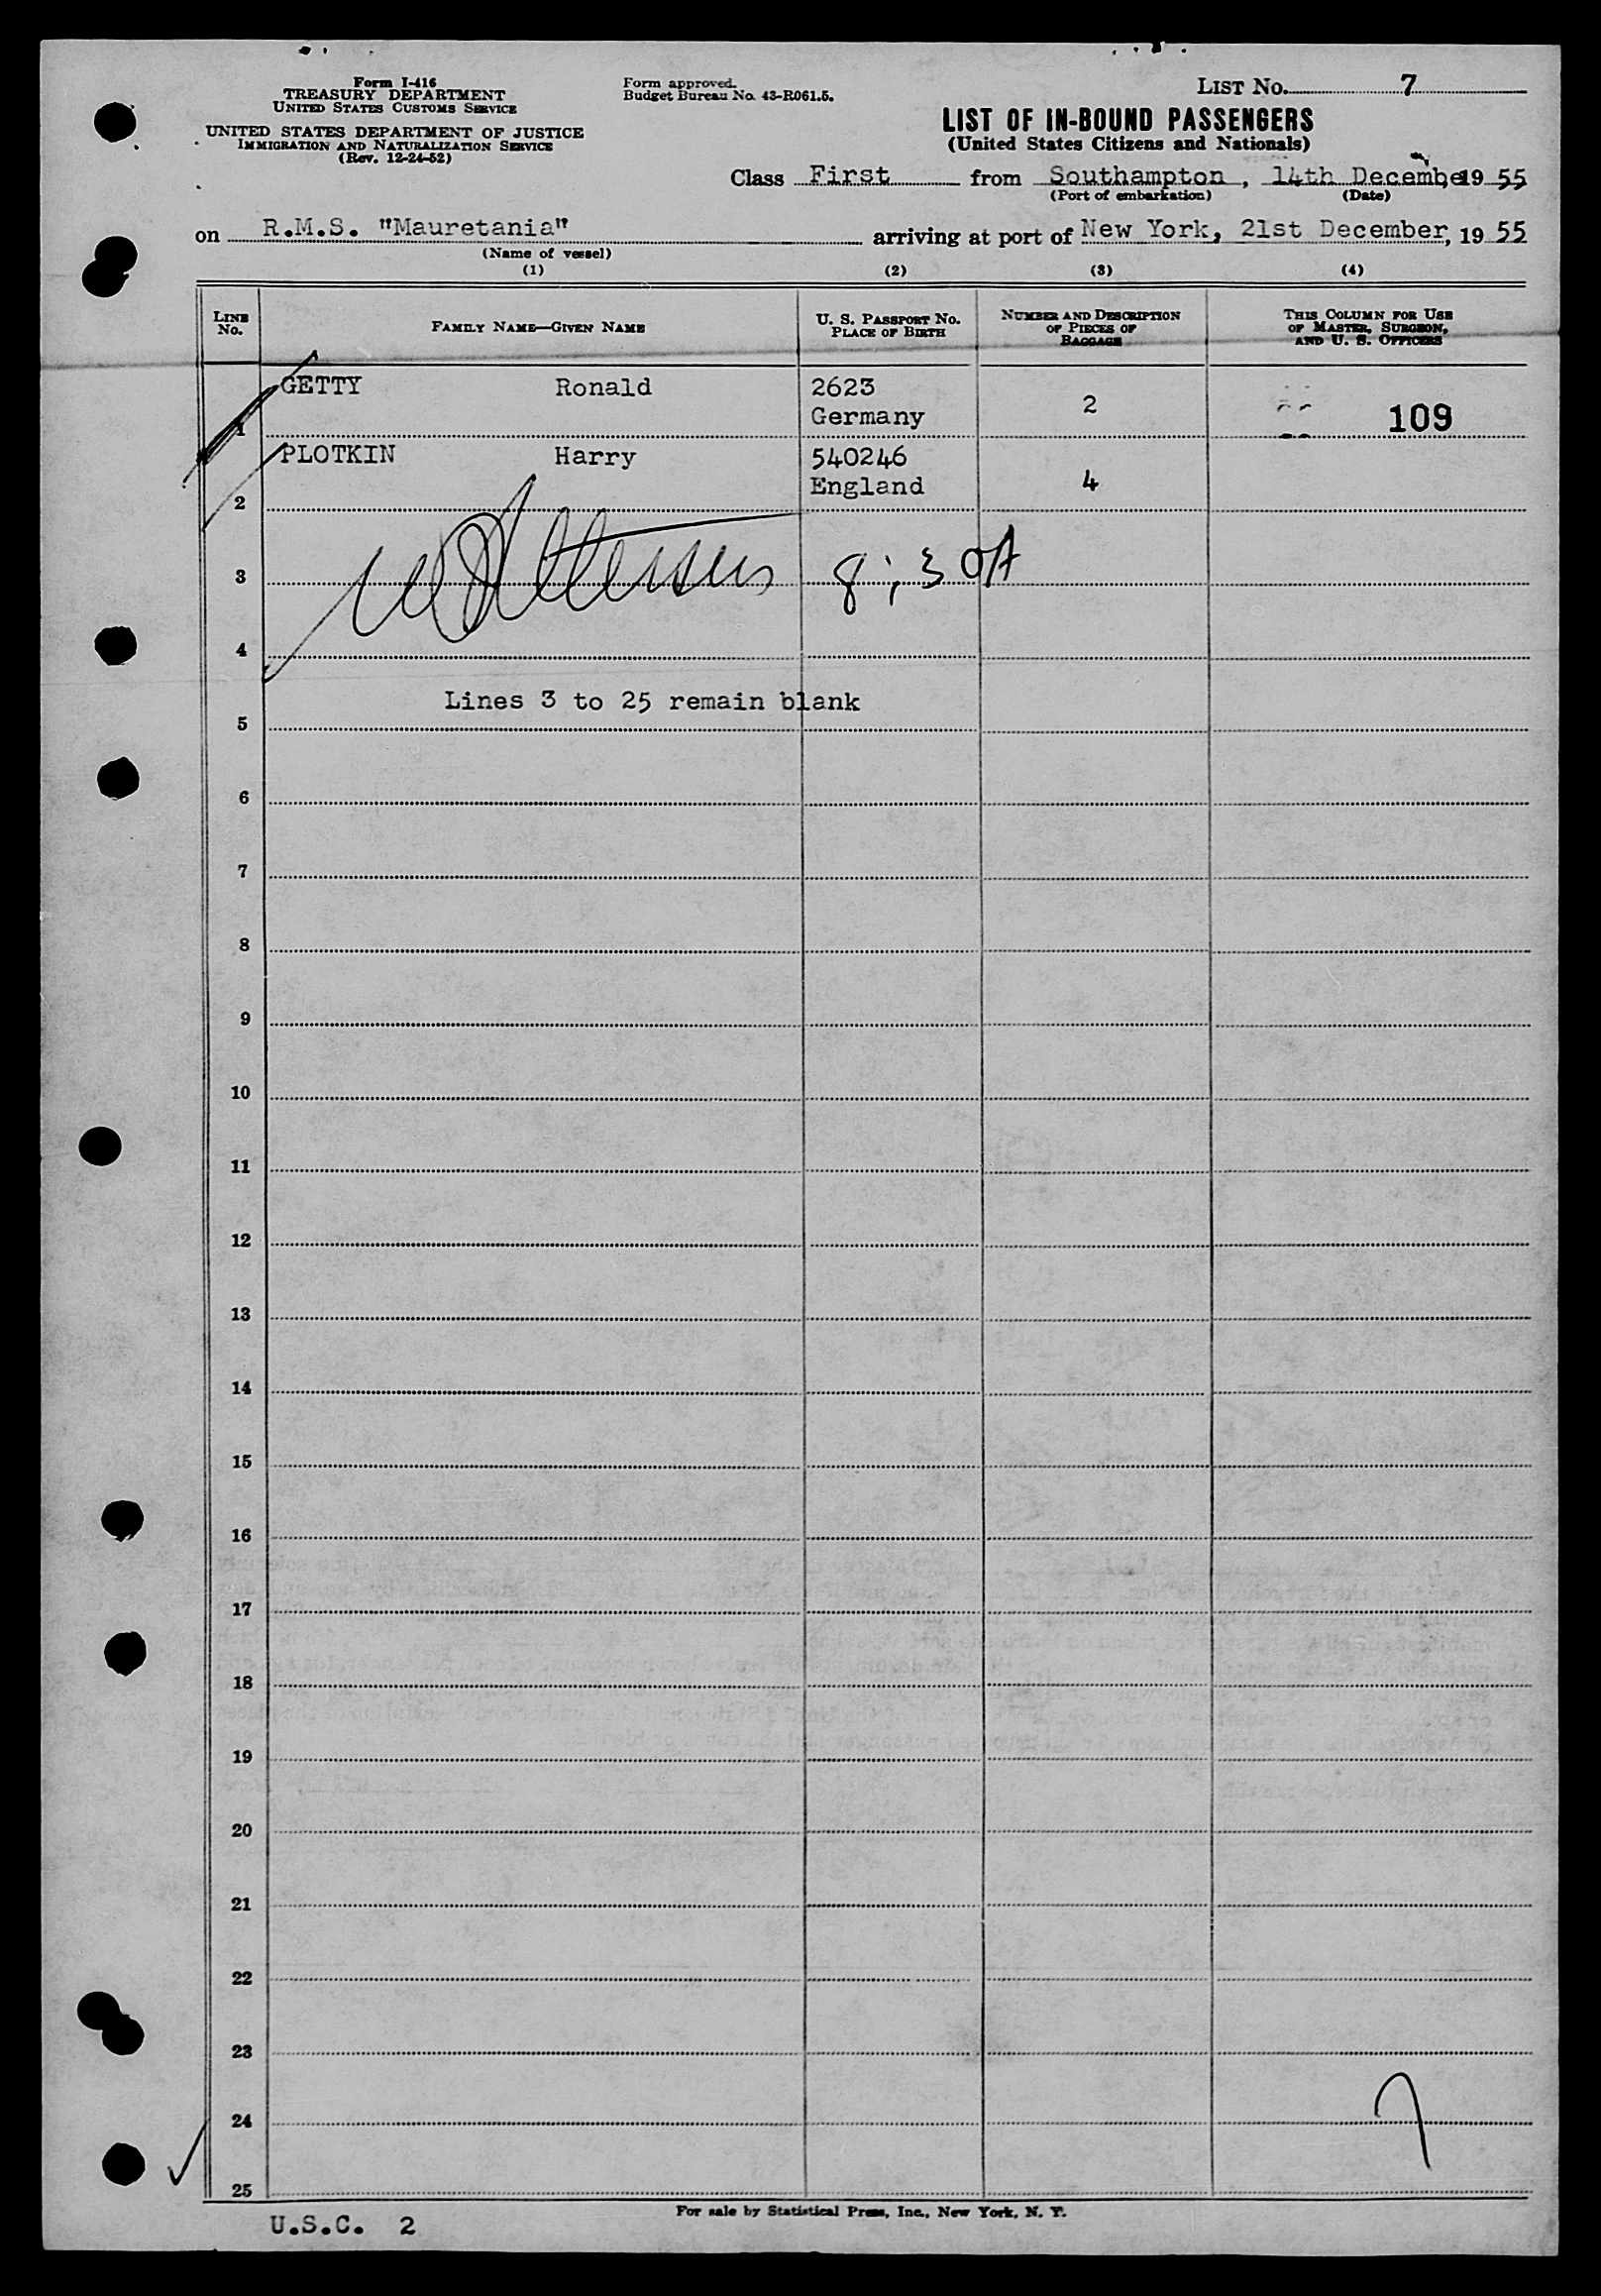 Form I-416
TREASURY DEPARTMENT
UNITED STATES CUSTOMS SERVICE
UNITED STATES DEPARTMENT OF JUSTICE
IMMIGRATION AND NATURALIZATION SERVICE
(Rev. 12-24-52)
Form approved.
Budget Bureau No. 43-R061.5.
LIST No. 7
LIST OF IN-BOUND PASSENGERS
(United States Citizens and Nationals)
Class First from Southampton, 14th December 19 55
(Port of embarkation) (Date)
on R.M.S. "Mauretania" arriving at port of New York, 21st December, 19 55
(Name of vessel)
(1) (2) (3) (4)
LINE No. FAMILY NAME—GIVEN NAME U. S. PASSPORT No. PLACE OF BIRTH NUMBER AND DESCRIPTION OF PIECES OF BAGGAGE THIS COLUMN FOR USE OF MASTER, SURGEON, AND U. S. OFFICERS
1 GETTY Ronald 2623 Germany 2 109
2 PLOTKIN Harry 540246 England 4
3
4
Lines 3 to 25 remain blank
5
6
7
8
9
10
11
12
13
14
15
16
17
18
19
20
21
22
23
24
25
For sale by Statistical Press, Inc., New York, N. Y.
U.S.C. 2